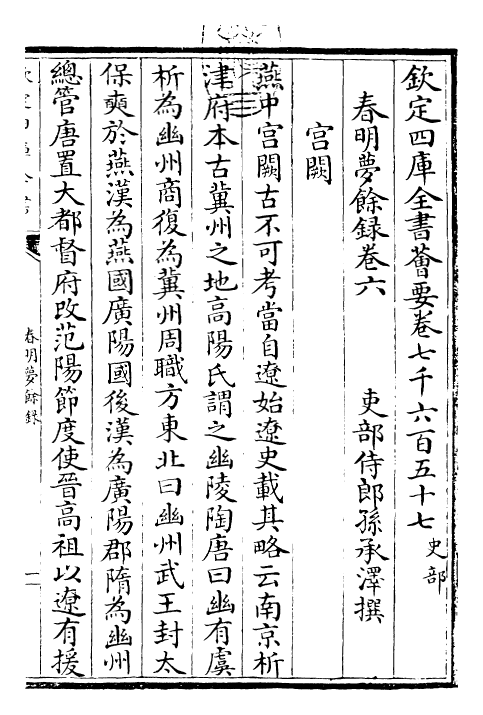 欽定四庫全書薈要卷七千六百五十七 史部
春明夢餘録卷六 吏部侍郎孫承澤撰
宫闕
燕中宫闕古不可考當自遼始遼史載其略云南京析
津府本古冀州之地高陽氏謂之幽陵陶唐曰幽有虞
析為幽州商復為冀州周職方東北曰幽州武王封太
保奭於燕漢為燕國廣陽國後漢為廣陽郡隋為幽州
總管唐置大都督府改范陽節度使晉高祖以遼有援
春明夢餘録